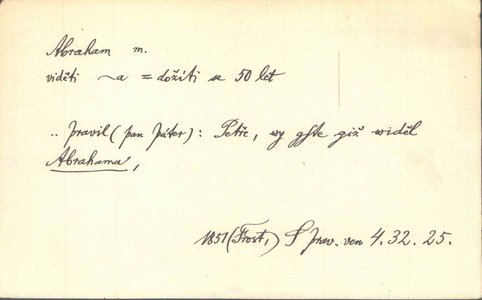 Abraham m.
viděti ~a = dožíti se 50 let
.. pravil (pan páter): Petře, wy gste giž widěl
Abrahama,
1851 (Frost,) S prav. ven 4. 32. 25.